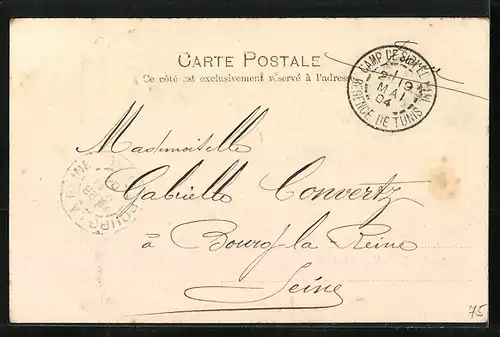 CARTE POSTALE
Ce côté est exclusivement réservé à l'adresse
CAMP DE SERVIÈRE
21 19
MAI
04
RÉGENCE DE TUNIS
Mademoiselle
Gabrielle Convertz
à Bourg-la-Reine
Seine
BOURG LA REINE
75